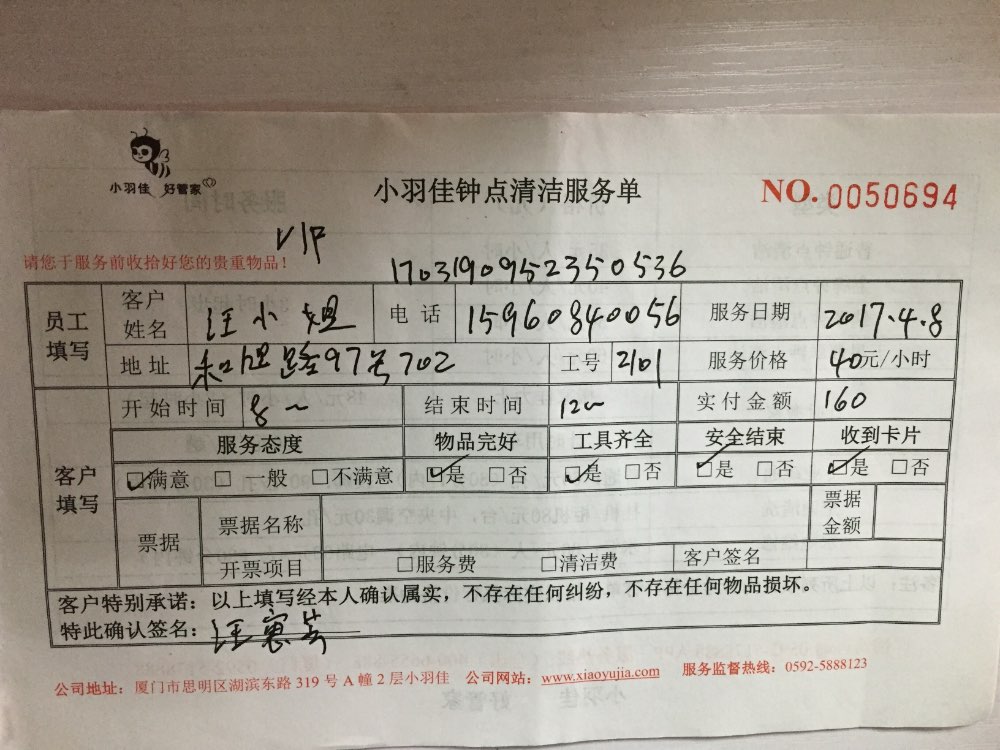 小羽佳 好管家
小羽佳钟点清洁服务单
NO. 0050694
VIP
请您于服务前收拾好您的贵重物品！
1703190952350536
员工填写 客户姓名 汪小姐 电话 15960840056 服务日期 2017.4.8
地址 路97号702 工号 2101 服务价格 40元/小时
客户填写 开始时间 8～ 结束时间 12～ 实付金额 160
服务态度 物品完好 工具齐全 安全结束 收到卡片
☑满意 □一般 □不满意 ☑是 □否 ☑是 □否 ☑是 □否 ☑是 □否
票据 票据名称 票据金额
开票项目 □服务费 □清洁费 客户签名
客户特别承诺：以上填写经本人确认属实，不存在任何纠纷，不存在任何物品损坏。
特此确认签名：汪
公司地址：厦门市思明区湖滨东路 319 号 A 幢 2 层小羽佳 公司网站：www.xiaoyujia.com 服务监督热线：0592-5888123